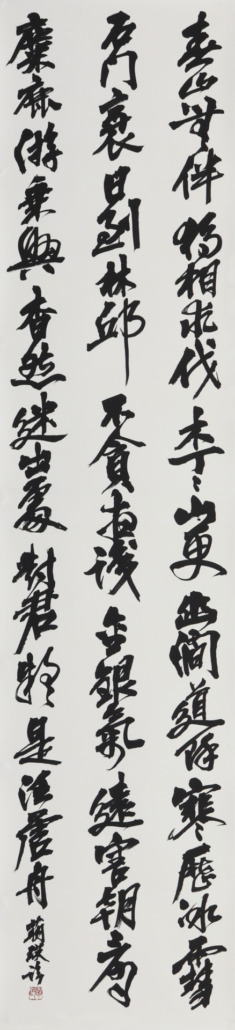 春山無伴獨相求伐木丁丁山更幽澗道餘寒歷冰雪
石門衰日到林邱不貪夜識金銀氣遠害朝看
麋鹿游乘興杳然迷出處對君疑是泛虛舟